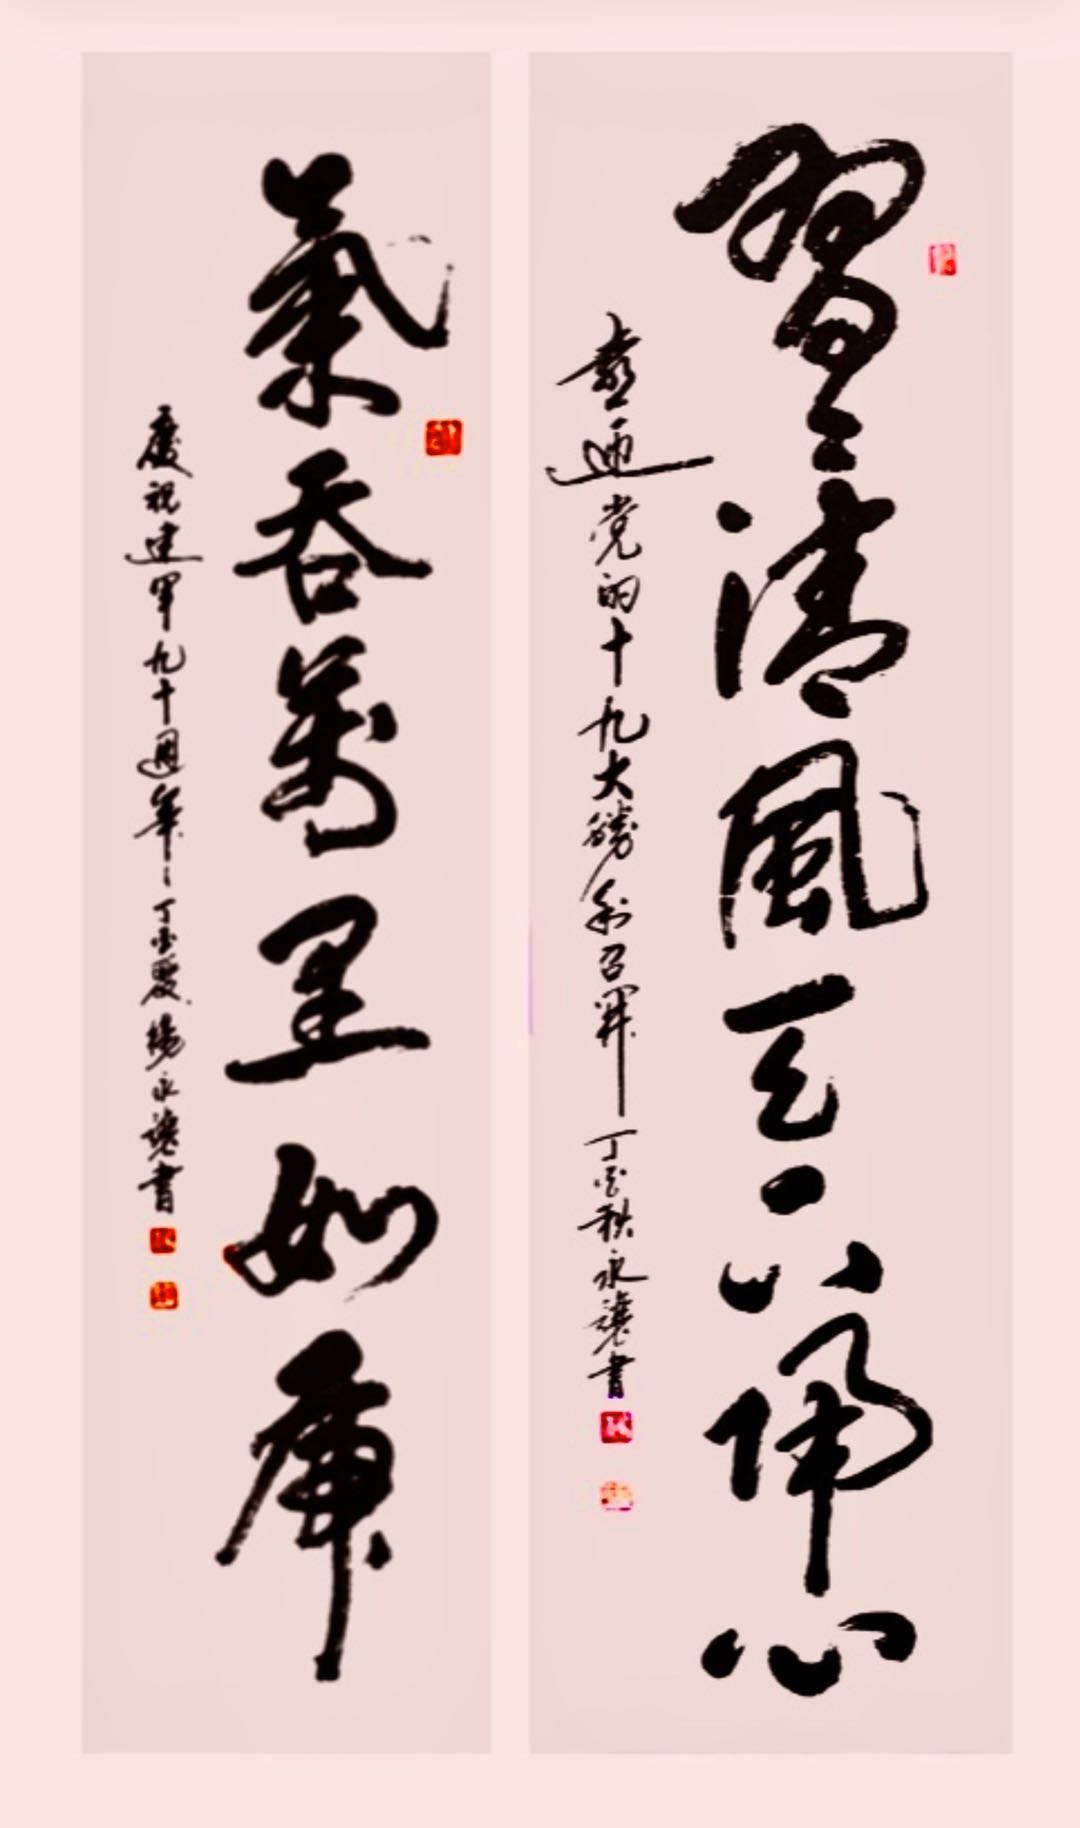 習〻清風天下歸心
喜迎党的十九大勝利召開丁酉秋永讓書
氣吞萬里如虎
慶祝建軍九十週年丁酉夏楊永讓書